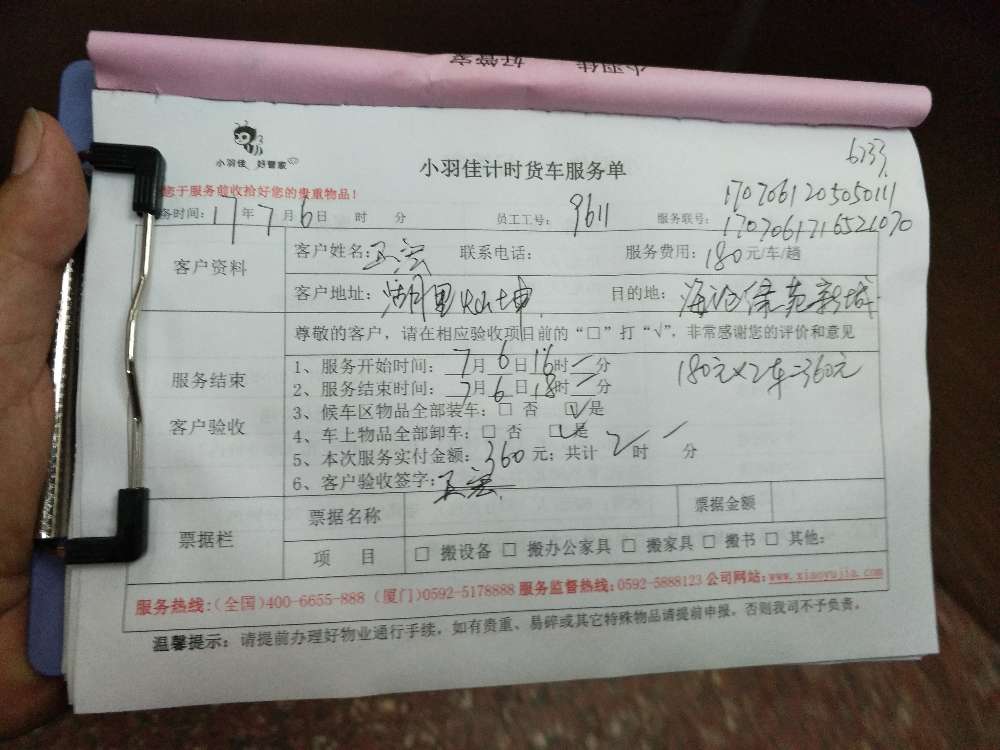 小羽佳 好管家
小羽佳 好管家
6233
小羽佳计时货车服务单
您于服务前收拾好您的贵重物品！
1707061205050111
务时间：17年7月6日 时 分 员工工号：9611 服务联号：1707061716521070
客户资料
客户姓名：王宏 联系电话： 服务费用：180元/车/趟
客户地址：湖里 目的地：海沧 新城
尊敬的客户，请在相应验收项目前的“□”打“√”，非常感谢您的评价和意见
服务结束
客户验收
1、服务开始时间：7月6日16时一分
180元×2车=360元
2、服务结束时间：7月6日18时一分
3、候车区物品全部装车：□ 否 ☑是
4、车上物品全部卸车：□ 否 ☑是
5、本次服务实付金额：360元；共计2时一分
6、客户验收签字：王宏
票据栏
票据名称 票据金额
项 目 □ 搬设备 □ 搬办公家具 □ 搬家具 □ 搬书 □ 其他：
服务热线：（全国）400-6655-888（厦门）0592-5178888 服务监督热线：0592-5888123 公司网站：www.xiaoyujia.com
温馨提示：请提前办理好物业通行手续，如有贵重、易碎或其它特殊物品请提前申报，否则我司不予负责。